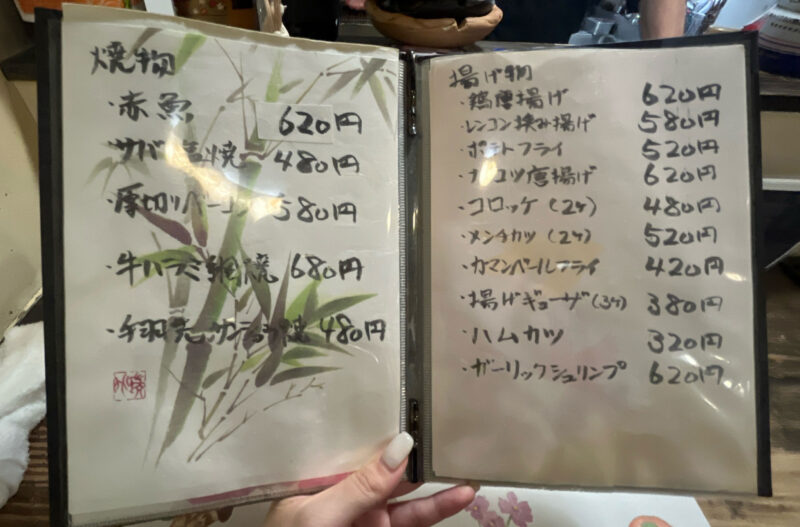 焼物
・赤魚 620円
・サバ塩焼 480円
・厚切りベーコン 580円
・牛ハラミ網焼 680円
・手羽先サンショウ焼 480円
揚げ物
・鶏唐揚げ 620円
・レンコン挟み揚げ 580円
・ポテトフライ 520円
・ナンコツ唐揚げ 620円
・コロッケ(2ケ) 480円
・メンチカツ(2ケ) 520円
・カマンベールフライ 420円
・揚げギョーザ(3ケ) 380円
・ハムカツ 320円
・ガーリックシュリンプ 620円